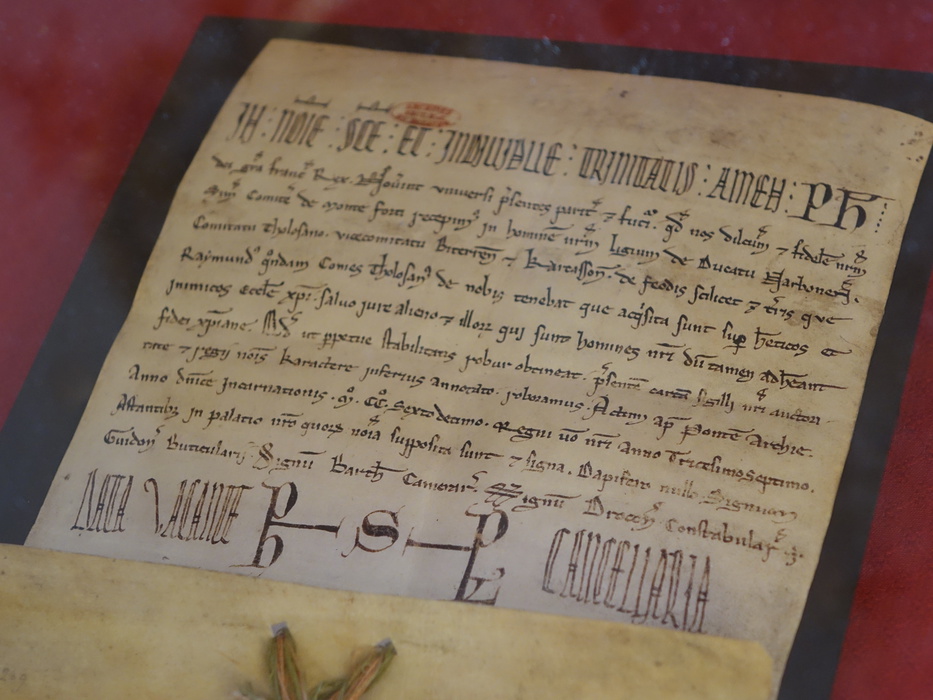 IN : NOIE : SCE : ET : INDIVIDUE : TRINITATIS : AMEN : Ph
dei grã francˢ Rex. Noverint universi p̃sentes parit̃ ⁊ futuri. qd̃ nos dilectũ ⁊ fidelẽ nr̃m
Simˢ Comitẽ de Monte forti recepimꝰ in hominẽ nr̃m ligium de Ducatu Narbonensi.
Comitatu Tholosano. vicecomitatu Biterreñ ⁊ Karcassoñ. de feodis scilicet ⁊ tr̃is que
Raymundꝰ qõndam Comes Tholosanꝰ de nobis tenebat que acq̃sita sunt suꝑ hereticos et
inimicos Eccl̃e xp̃i. salvo iure alieno ⁊ illoꝝ qui sunt homines nr̃i dũ tamen adhereant
fidei xp̃iane. Qd̃ ut ꝑpetue stabilitatis robur obtineat. p̃sentẽ cartã sigilli nr̃i auctori-
tate ⁊ regii noı̃s karactere inferius annotato. roboramus. Actum apˀ Pontẽ Archie.
Anno dñice Incarnationis. M. CC. Sextodecimo. Regni vˀo nr̃i anno Tricesimoseptimo.
Astantibꝫ in palatio nr̃o quoꝝ noı̃a supposita sunt ⁊ signa. Dapifero nullo. Signum
Guidonˢ Buticularij. Signũ Barth̃ Camerarˢ. Signũ Droconˢ Constabularˢ.
DATA VACANTE Ph S Ls CANCELLARIA